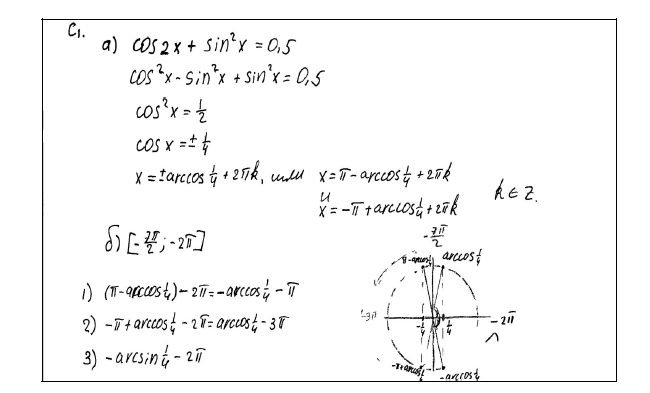 C₁.
а) cos2x + sin²x = 0,5
cos²x - sin²x + sin²x = 0,5
cos²x = 1/2
cos x = ± 1/4
x = ± arccos 1/4 + 2πk, или x = π - arccos 1/4 + 2πk
и
x = -π + arccos 1/4 + 2πk
k ∈ Z.
б) [-7π/2; -2π]
1) (π - arccos 1/4) - 2π = - arccos 1/4 - π
2) -π + arccos 1/4 - 2π = arccos 1/4 - 3π
3) - arcsin 1/4 - 2π
-7π/2
π - arccos 1/4
arccos 1/4
-3π
-1/4
1/4
-2π
-π + arccos 1/4
-arccos 1/4